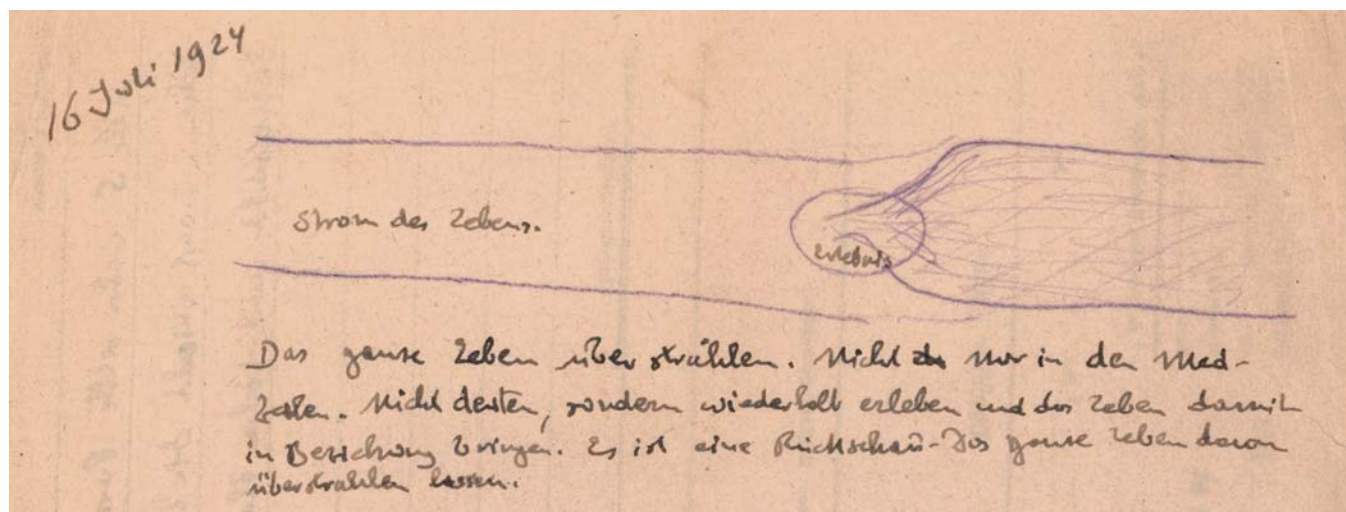 16 Juli 1924
Strom des Lebens.
Erlebnis
Das ganze Leben überstrahlen. Nicht nur in den Med-
Zeiten. Nicht deuten, sondern wiederholt erleben und das Leben damit
in Beziehung bringen. Es ist eine Rückschau - Das ganze Leben davon
überstrahlen lassen.